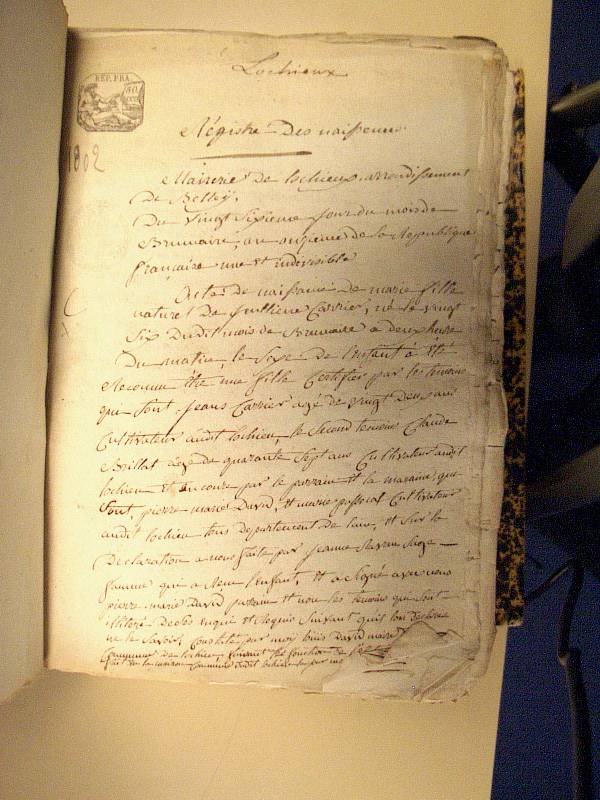 Lochieux
REP. FRA.
1802
Régistre Des naissences
Mairerie de lochieux, arrondissement
De Belley,
Du Vingt Sixieme Jour du mois de
Brumaire, an onzieme de la République
française une et indivisible
Acte de naissance de marie fille
naturel De Carrier, né le vingt
Six Dudit mois de Brumaire a deux heure
Du matin, le Sexe de lenfant à été
Reconnu être une fille Certifié par les temoins
que sont Jean Carrier agé de vingt Deux ans
Cultivateur audit lochieu, le Second temoins Claude
Billat agé de quarante Sept ans Cultivateur audit
lochieu Et encore par le parrain et la maraine qui
Sont pierre marie David, et marie Cultivateur
audit lochieu tous Departement de lain, et Sur la
Declaration a nous faite par Jeanne Sage
famme qui a lenfant, Et a Signé avec nous
pierre marie David parrain Et non les temoins que sont
illitéré De ce enquit et Requis Suivant quis lon Déclare
ne le Savoir, Constaté par moy louis David maire
Commune De lochieu faisant les fonction de
fait en la maison Commune dudit lochieu